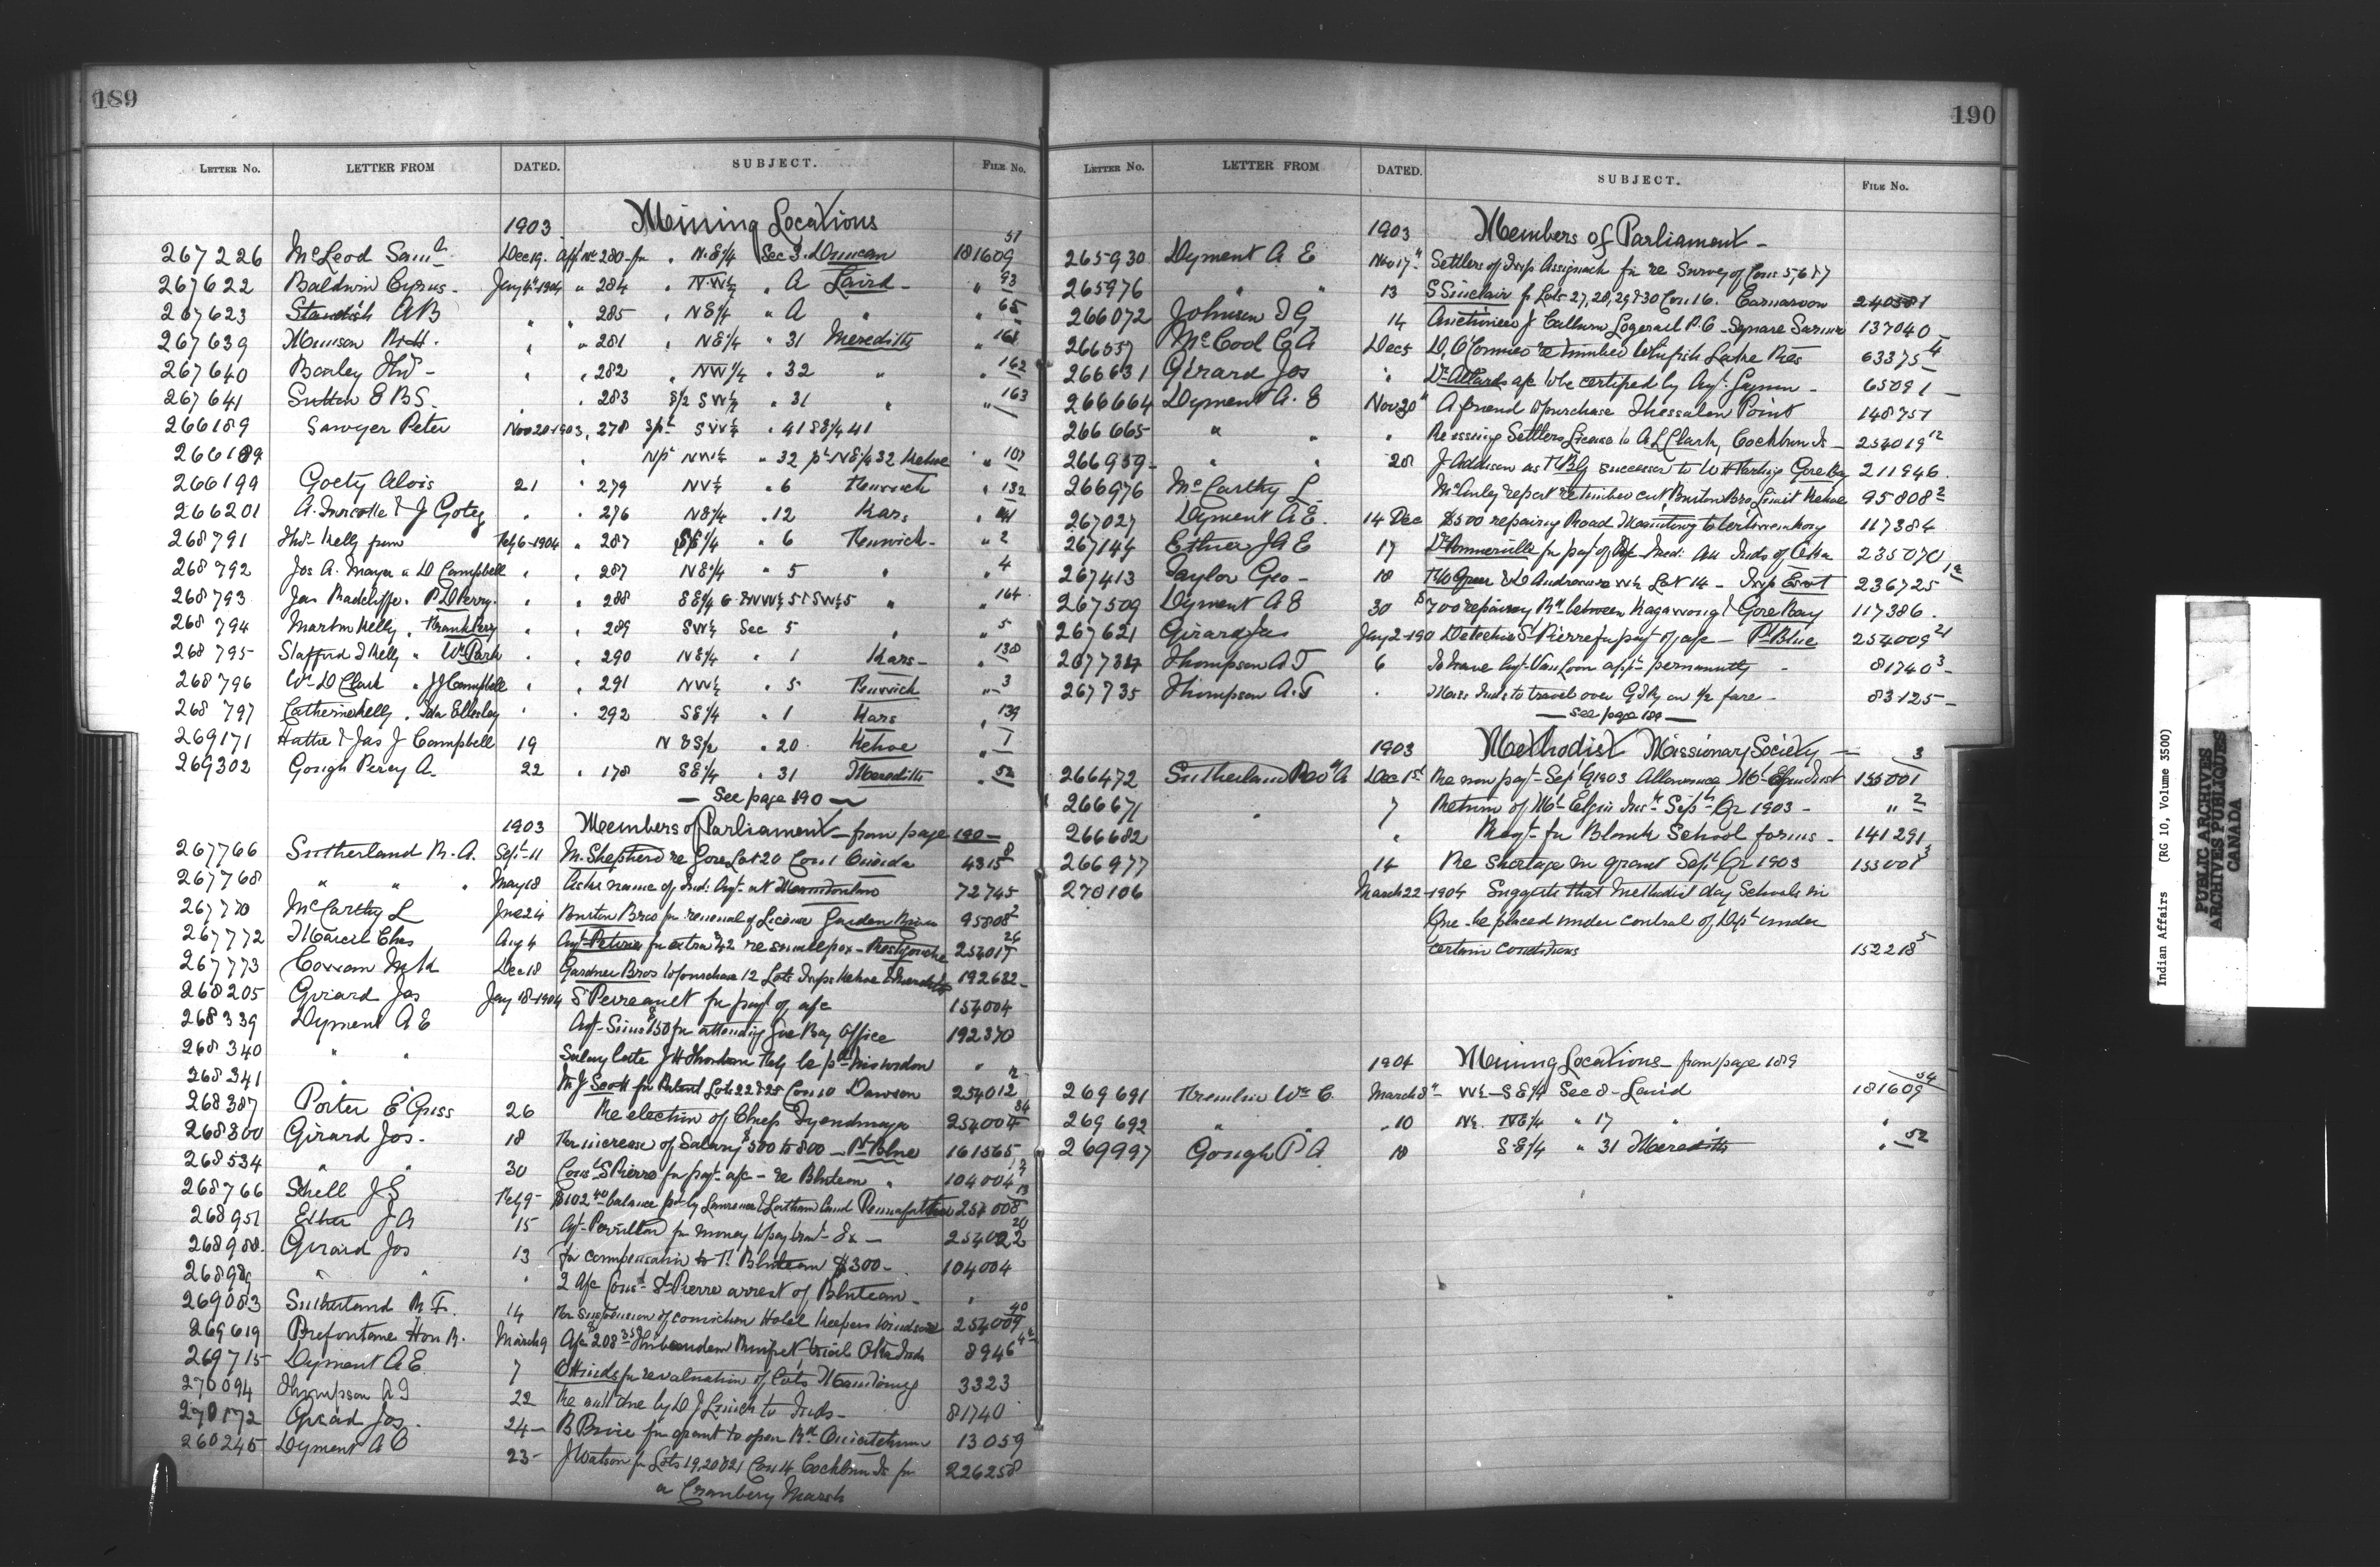 189
LETTER No. LETTER FROM DATED. SUBJECT. FILE No.
1903 Mining Locations
267226 McLeod Saml Dec 19. appn No 280 for " N.E 1/4 Sec 3. Duncan 181609 51
267622 Baldwin Cyrus - Jany 4th 1904 " 284 " N.W 1/4 " A Laird - " 93
267623 Standish A B " " 285 " N E 1/4 " A " " 65
267639 R H. " " 281 " N E 1/4 " 31 Meredith " 161
267640 " " 282 " NW 1/4 " 32 " " 162
267641 Sutton E B S. " " 283 S/2 SW 1/4 " 31 " " 163
266189 Sawyer Peter Nov 20 1903, 278 Spt SW 1/4 " 41 SE 1/4 41
266189 " Npt NW 1/4 " 32 pt NE 1/4 32 Kehoe " 107
266199 Goety Alois 21 " 279 NW 1/4 " 6 Fenwich " 132
266201 A. Turcotte & J Gotey " " 276 NE 1/4 " 12 Kars "
268791 Thos Kelly from Feby 6-1904 " 287 SE 1/4 " 6 Fenwick - " 2
268792 Jos A. Mayer " D Campbell " " 287 NE 1/4 " 5 " " 4
268793 Jas Radcliffe. P D Perry. " " 288 SE 1/4 6 " " 164
268794 Martin Kelly " Frank Perry " " 289 SW 1/4 Sec 5 " " 5
268795 Stafford J Kelly " Wm Park " " 290 NE 1/4 " 1 Kars - " 138
268796 Wm D Clark " J J Campbell " " 291 NW 1/4 " 5 Fenwick " 3
268797 Catherine Kelly " Ida Ellesley " " 292 SE 1/4 " 1 Kars " 139
269171 Hattie & Jas J Campbell 19 " 20 Kehoe " 1
269302 Gough Percy A. 22 " 178 SE 1/4 " 31 Meredith " 52
— See page 190 —
1903 Members of Parliament - from page 190 -
267766 Sutherland R. A. Sept 11 M. Shepherd re Gore Lot 20 Con 1 Oneida 4315 8
267768 " " " May 18 Asks name of Ind: Agt at 72745
267770 McCarthy L June 24 Burton Bros for renewal of License Garden River 95808 2
267772 Marcil Chas Aug 4 Agt Pitre for extra $42 re smallpox - Restigouche 254017 26
267773 Dec 18 Gardner Bros to purchase 12 Lots Twps Kehoe & Meredith 192632 -
268205 Girard Jos Jany 18-1904 S Perreault for payt of a/c 154004
268339 Dyment A E Agt Sims $150 for attending Gore Bay Office 192370
268340 " " Salary late J H Thorburn "
268341 " M J Scott for Patent Lots 22 & 25 Con 10 Dawson 254012 2
268387 Porter E Guss 26 Re election of Chiefs Tyendinaga 254004 34
268300 Girard Jos. 18 For increase of Salary $500 to 800 - Pt Blue 161565
268534 " " 30 Cons St Pierre for payt a/c - re Bluteau " 104004
268766 Schell J S Feby 9 - $102.40 balance pd by Lawrence & Latham Land 254008 13
268951 Ethier J A 15 Agt Perillard for money to pay - &c - 254022 20
268988. Girard Jos 13 for compensation to T. Bluteau $300 - 104004
268989 " " " 2 a/c Cons St Pierre arrest of Bluteau - "
269083 Sutherland R F. 14 For suspension of conviction Hotel Keepers Windsor 254009 40
269619 Prefontaine Hon R. March 9 A/c $208.35 8946
269715 Dyment A E 7 O Hinds for revaluation of lots Manitowg 3323
270094 Thompson A T 22 Re amt due by D J Linick to Inds - 81740
270172 Girard Jos. 24 - B Brice for grant to open Rd 13059
260245 Dyment A E 23 - J Watson for Lots 19, 20 & 21 Con 14 Cockburn Is for 226258
a Cranbery Marsh
190
LETTER No. LETTER FROM DATED. SUBJECT. FILE No.
1903 Members of Parliament -
265930 Dyment A E Nov 17" Settlers of Twp Assiginack for re Survey of Cons 5, 6 & 7
265976 " " 13 S Sinclair for Lots 27, 28, 29 & 30 Con 16. Carnarvon 240581
266072 Johnson T G 14 137040 -
266557 McCool C A Dec 5 D, O'Connor re timber Whitefish Lake Res 63375 4
266631 Girard Jos " Dr Allards a/c to be certified by Agt. Gagnon - 65091 -
266664 Dyment A. E Nov 30" A friend to purchase Thessalon Point 148751
266665 " " " Re issuing Settlers License to A L Clark, Cockburn Is - 254019 12
266959 - " " 28 J Addison as successor to W H Gore Bay 211946.
266976 McCarthy L. McCurley report re timber cut Burton Bros Limit Kehoe 95808 2
267027 Dyment A E. 14 Dec $500 repairing Road 117384
267144 Ethier J A E 17 for payt of a/c Med: Att Inds of Oka 235070
267413 Taylor Geo - 18 Lot 14 - Twp Escot 236725 12
267509 Dyment A E 30 $700 repairing Rd between Kagawong & Gore Bay 117386.
267621 Girard Jos Jany 2-190 Detective St Pierre for payt of a/c - Pt Blue 254009 21
267734 Thompson A T 6 To have Agt Van Loon appt permanently - 81740 3 -
267735 Thompson A. T " Miss Inds to travel over G T Ry on 1/2 fare - 83125 -
— See page 189 —
1903 Methodist Missionary Society -
266472 Sutherland Revd A Dec 1st Re non payt - Sept Qr 1903 Allowance Mt Elgin Inst 155001 3
266671 " 7 Return of Mt Elgin Inst Sept Qr 1903 - " 2
266682 " Reqt for Blank School forms - 141291
266977 14 Re Shortage in grant Sept Qr 1903 155001 3
270106 March 22-1904 Suggests that Methodist day Schools in
Ont - be placed under control of Dept under
certain conditions 152218 5
1904 Mining Locations - from page 189
269691 Kremlin Wm C. March 8" - W 1/2 - S E 1/4 Sec 8 - Laird 181609 54
269692 " " " 10 N 1/2 NE 1/4 " 17 " "
269997 Gough P A 18 S E 1/4 " 31 Meredith " 52
Indian Affairs (RG 10, Volume 3500)
PUBLIC ARCHIVES
ARCHIVES PUBLIQUES
CANADA